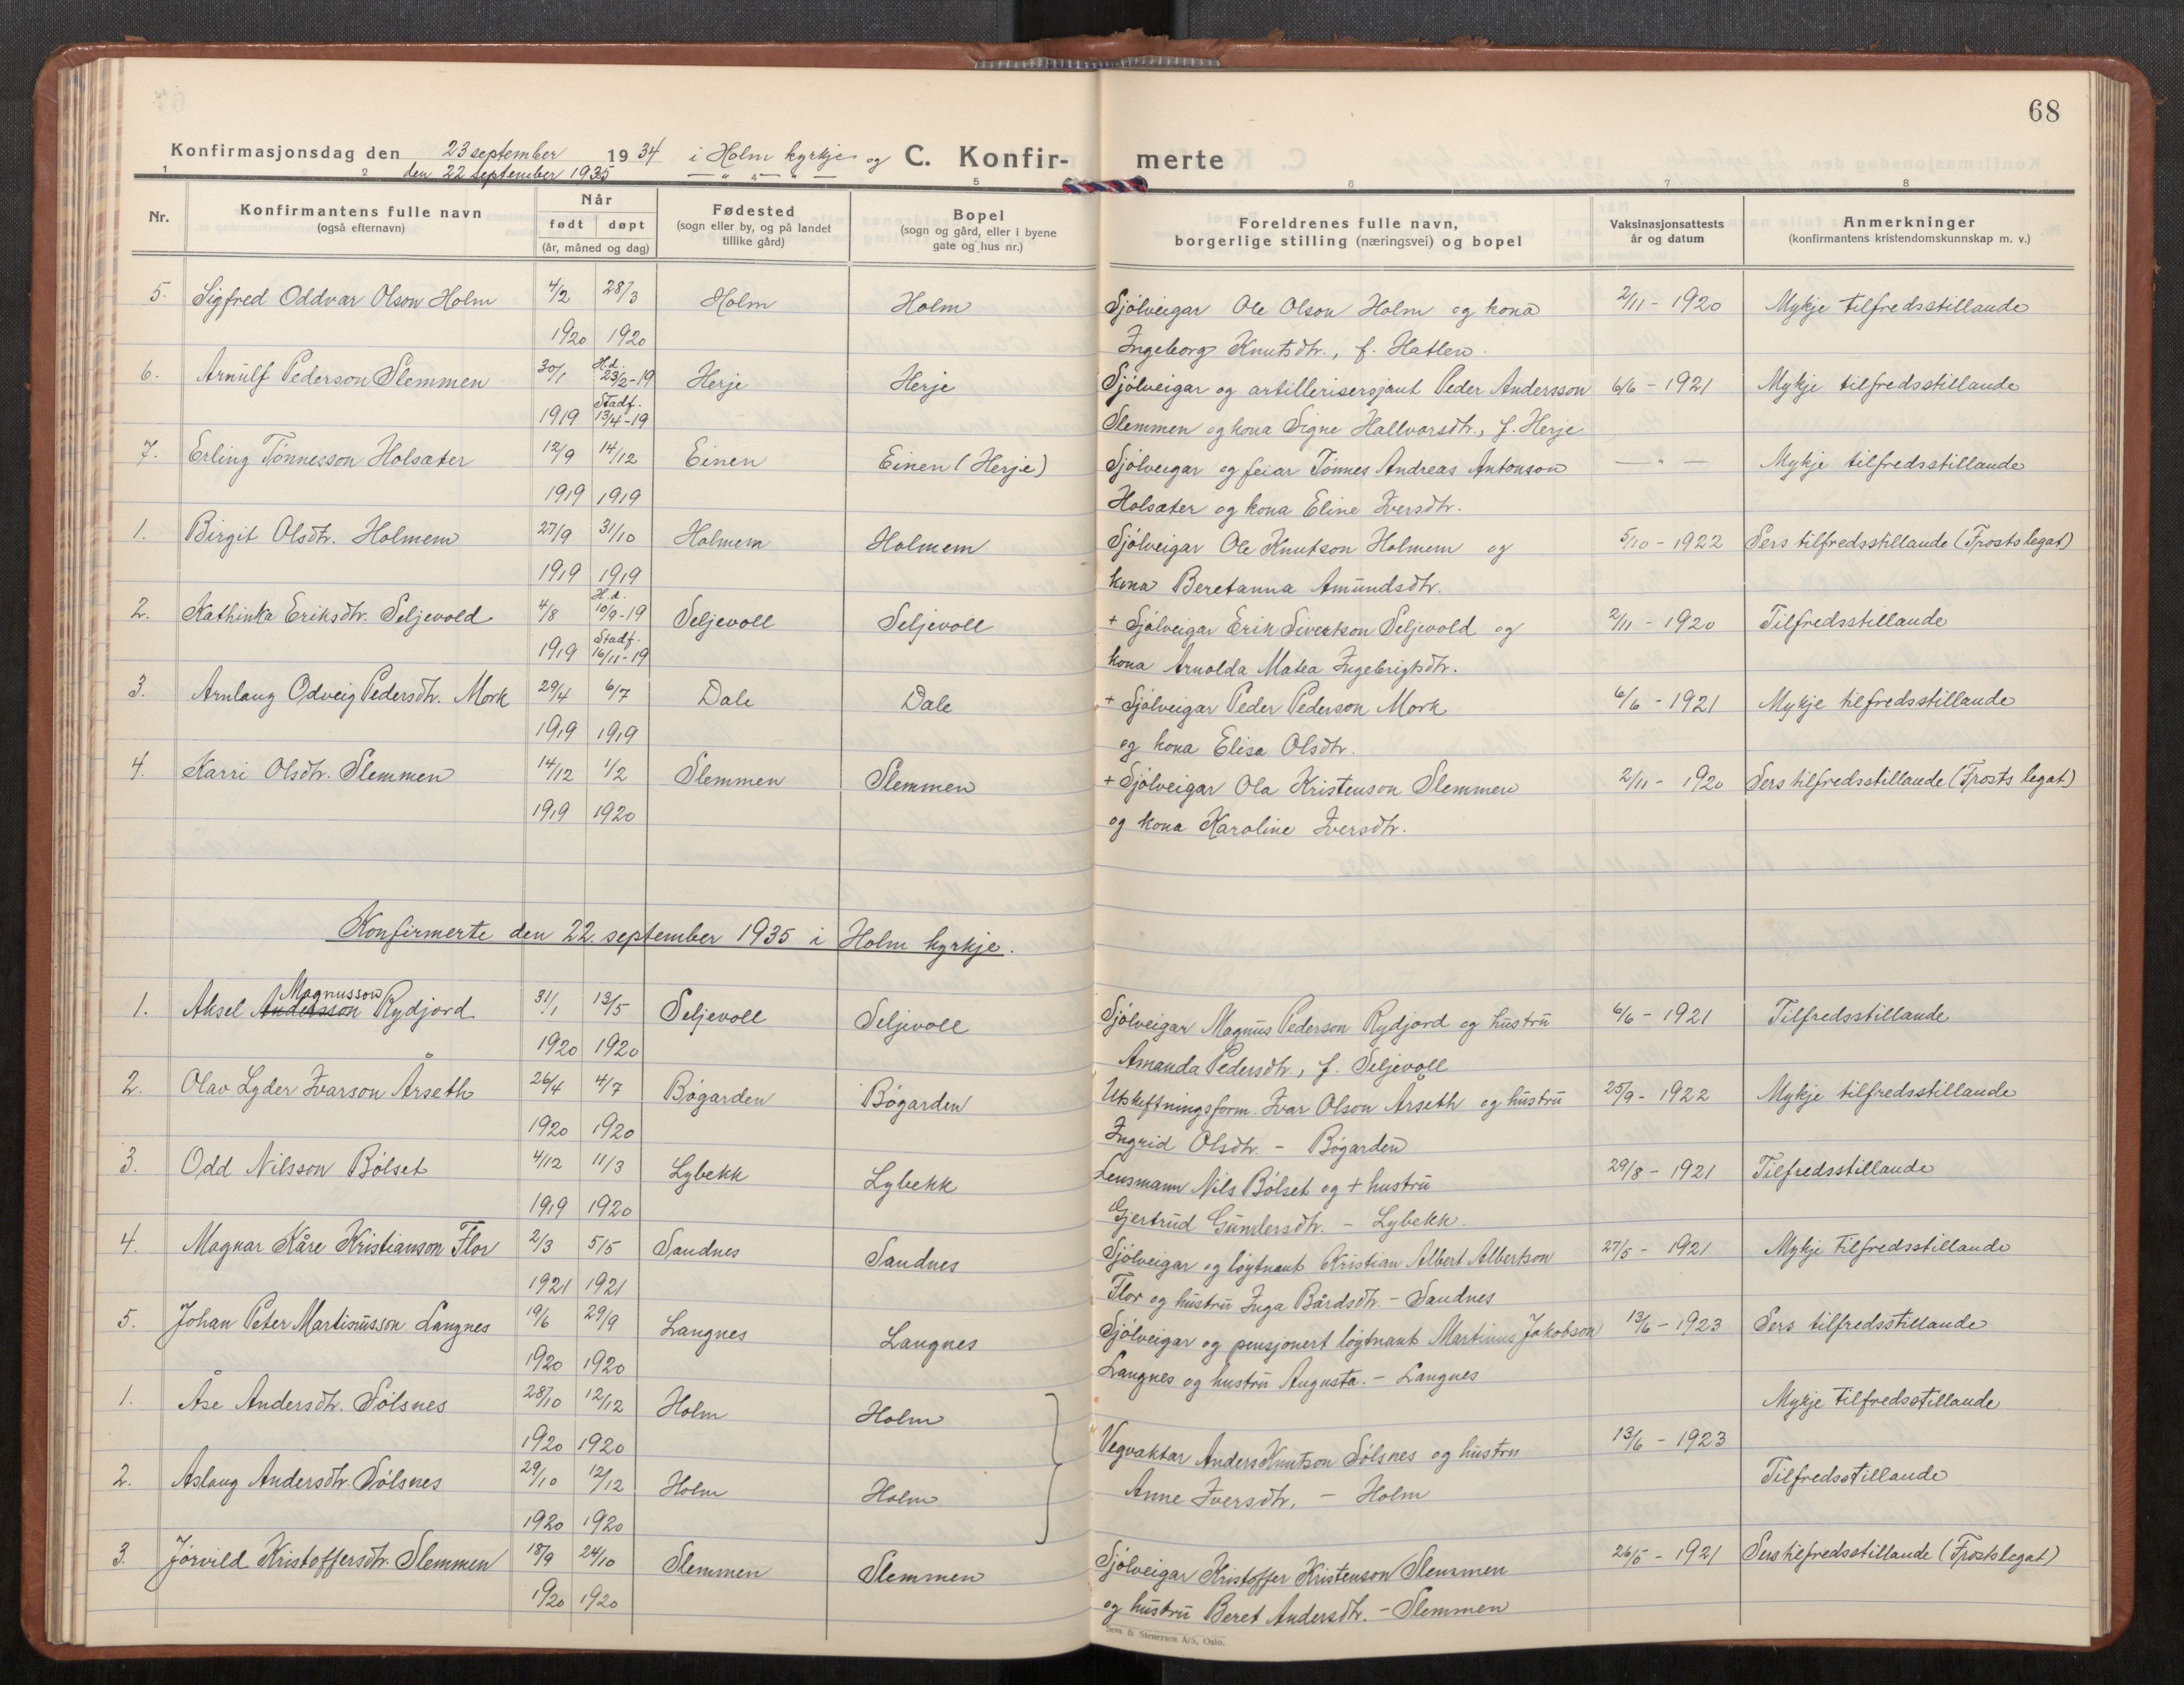 68
Konfirmasjonsdag den 23 september 1934 i Holm kyrkje og C. Konfir- merte
den 22 september 1935 — " — " —
1 2 3 4 5 6 7 8
Nr. Konfirmantens fulle navn (også efternavn) Når født døpt (år, måned og dag) Fødested (sogn eller by, og på landet tillike gård) Bopel (sogn og gård, eller i byene gate og hus nr.) Foreldrenes fulle navn, borgerlige stilling (næringsvei) og bopel Vaksinasjonsattests år og datum Anmerkninger (konfirmantens kristendomskunnskap m. v.)
5. Sigfred Oddvar Olson Holm 4/2 28/3 Holm Holm Sjølveigar Ole Olson Holm og kona 2/11 - 1920 Mykje tilfredsstillande
1920 1920 Ingeborg Knutsdtr., f. Hatlen.
6. Arnulf Pederson Slemmen 30/1 H.d. 23/2-19 Herje Herje Sjølveigar og artillerisersjant Peder Andersson 6/6 - 1921 Mykje tilfredsstillande
1919 Stadf. 13/4-19 Slemmen og kona Signe Hallvorsdtr., f. Herje
7. Erling Tønnesson Holsæter 12/9 14/12 Einen Einen (Herje) Sjølveigar og feiar Tønnes Andreas Antonson — " — Mykje tilfredsstillande
1919 1919 Holsæter og kona Eline Iversdtr.
1. Birgit Olsdtr. Holmem 27/9 31/10 Holmem Holmem Sjølveigar Ole Knutson Holmem og 5/10 - 1922 Sers tilfredsstillande (Frosts legat)
1919 1919 kona Beretanna Amundsdtr.
2. Kathinka Eriksdtr. Seljevold 4/8 H.d. 10/9-19 Seljevoll Seljevoll + Sjølveigar Erik Sivertson Seljevold og 2/11 - 1920 Tilfredsstillande
1919 Stadf. 16/11-19 kona Arnolda Matea Ingebrigtsdtr.
3. Arnlaug Odveig Pedersdtr. Mork 29/4 6/7 Dale Dale + Sjølveigar Peder Pederson Mork 6/6 - 1921 Mykje tilfredsstillande
1919 1919 og kona Elisa Olsdtr.
4. Karri Olsdtr. Slemmen 14/12 1/2 Slemmen Slemmen + Sjølveigar Ola Kristenson Slemmen 2/11 - 1920 Sers tilfredsstillande (Frosts legat)
1919 1920 og kona Karoline Iversdtr.
Konfirmerte den 22. september 1935 i Holm kyrkje.
Magnusson
1. Aksel Andersson Rydjord 31/1 13/5 Seljevoll Seljevoll Sjølveigar Magnus Pederson Rydjord og hustru 6/6 - 1921 Tilfredsstillande
1920 1920 Amanda Pedersdtr., f. Seljevoll
2. Olav Lyder Ivarson Årseth 26/4 4/7 Bøgarden Bøgarden Utskiftningsform. Ivar Olson Årseth og hustru 25/9 - 1922 Mykje tilfredsstillande
1920 1920 Ingrid Olsdtr. - Bøgarden
3. Odd Nilsson Bølset 4/12 11/3 Lybekk Lybekk Lensmann Nils Bølset og + hustru 29/8 - 1921 Tilfredsstillande
1919 1920 Gjertrud Gundersdtr. - Lybekk.
4. Magnar Kåre Kristianson Flor 2/3 5/5 Sandnes Sandnes Sjølveigar og løytnant Kristian Albert Albertson 27/5 - 1921 Mykje tilfredsstillande
1921 1921 Flor og hustru Inga Bårdsdtr. - Sandnes
5. Johan Peter Martinusson Langnes 19/6 29/9 Langnes Langnes Sjølveigar og pensjonert løytnant Martinus Jakobson 13/6 - 1923 Sers tilfredsstillande
1920 1920 Langnes og hustru Augusta. - Langnes
1. Åse Andersdtr. Sølsnes 28/10 12/12 Holm Holm Mykje tilfredsstillande
1920 1920 Vegvaktar Anders Knutson Sølsnes og hustru 13/6 - 1923
2. Aslaug Andersdtr. Sølsnes 29/10 12/12 Holm Holm Anne Iversdtr. - Holm Tilfredsstillande
1920 1920
3. Jørvild Kristoffersdtr. Slemmen 18/9 24/10 Slemmen Slemmen Sjølveigar Kristoffer Kristenson Slemmen 26/5 - 1921 Sers tilfredsstillande (Frosts legat)
1920 1920 og hustru Beret Andersdtr. - Slemmen
Sem & Stenersen A/S, Oslo.